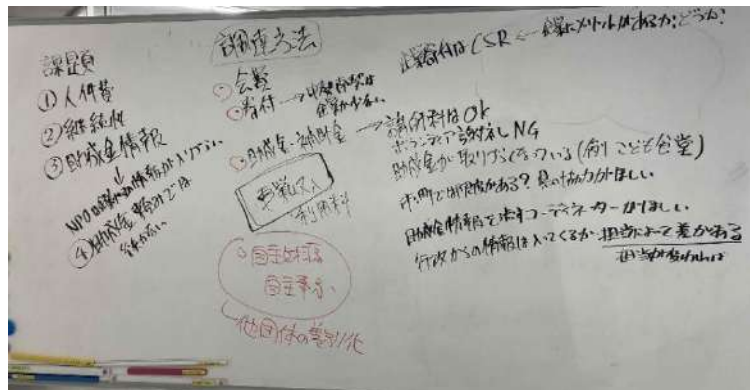 課題
①人件費
②継続性
③助成金情報
↓
NPO
④助成金頼みでは
調達方法
・会費
・寄付→
・助成金・補助金
事業収入
利用料
自主財源
自主事業
他団体の差別化
企業寄付はCSR←企業にメリットがあるか?どうか?
→講師料はOK
ボランティア NG
助成金が取りづらくなっている(例)こども食堂)
市町では限度がある?県の協力がほしい
助成金情報を流すコーディネーターがほしい
行政からの情報は入ってくるが担当によって差がある
担当が変われば